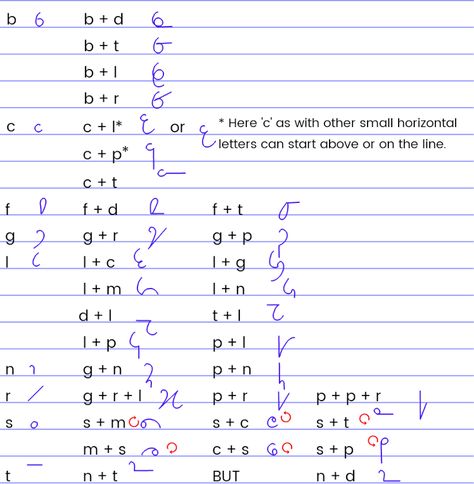 b b + d
b + t
b + l
b + r
c c + l* or * Here 'c' as with other small horizontal
c + p* letters can start above or on the line.
c + t
f f + d f + t
g g + r g + p
l l + c l + g
l + m l + n
d + l t + l
l + p p + l
n g + n p + n
r g + r + l p + r p + p + r
s s + m s + c s + t
m + s c + s s + p
t n + t BUT n + d